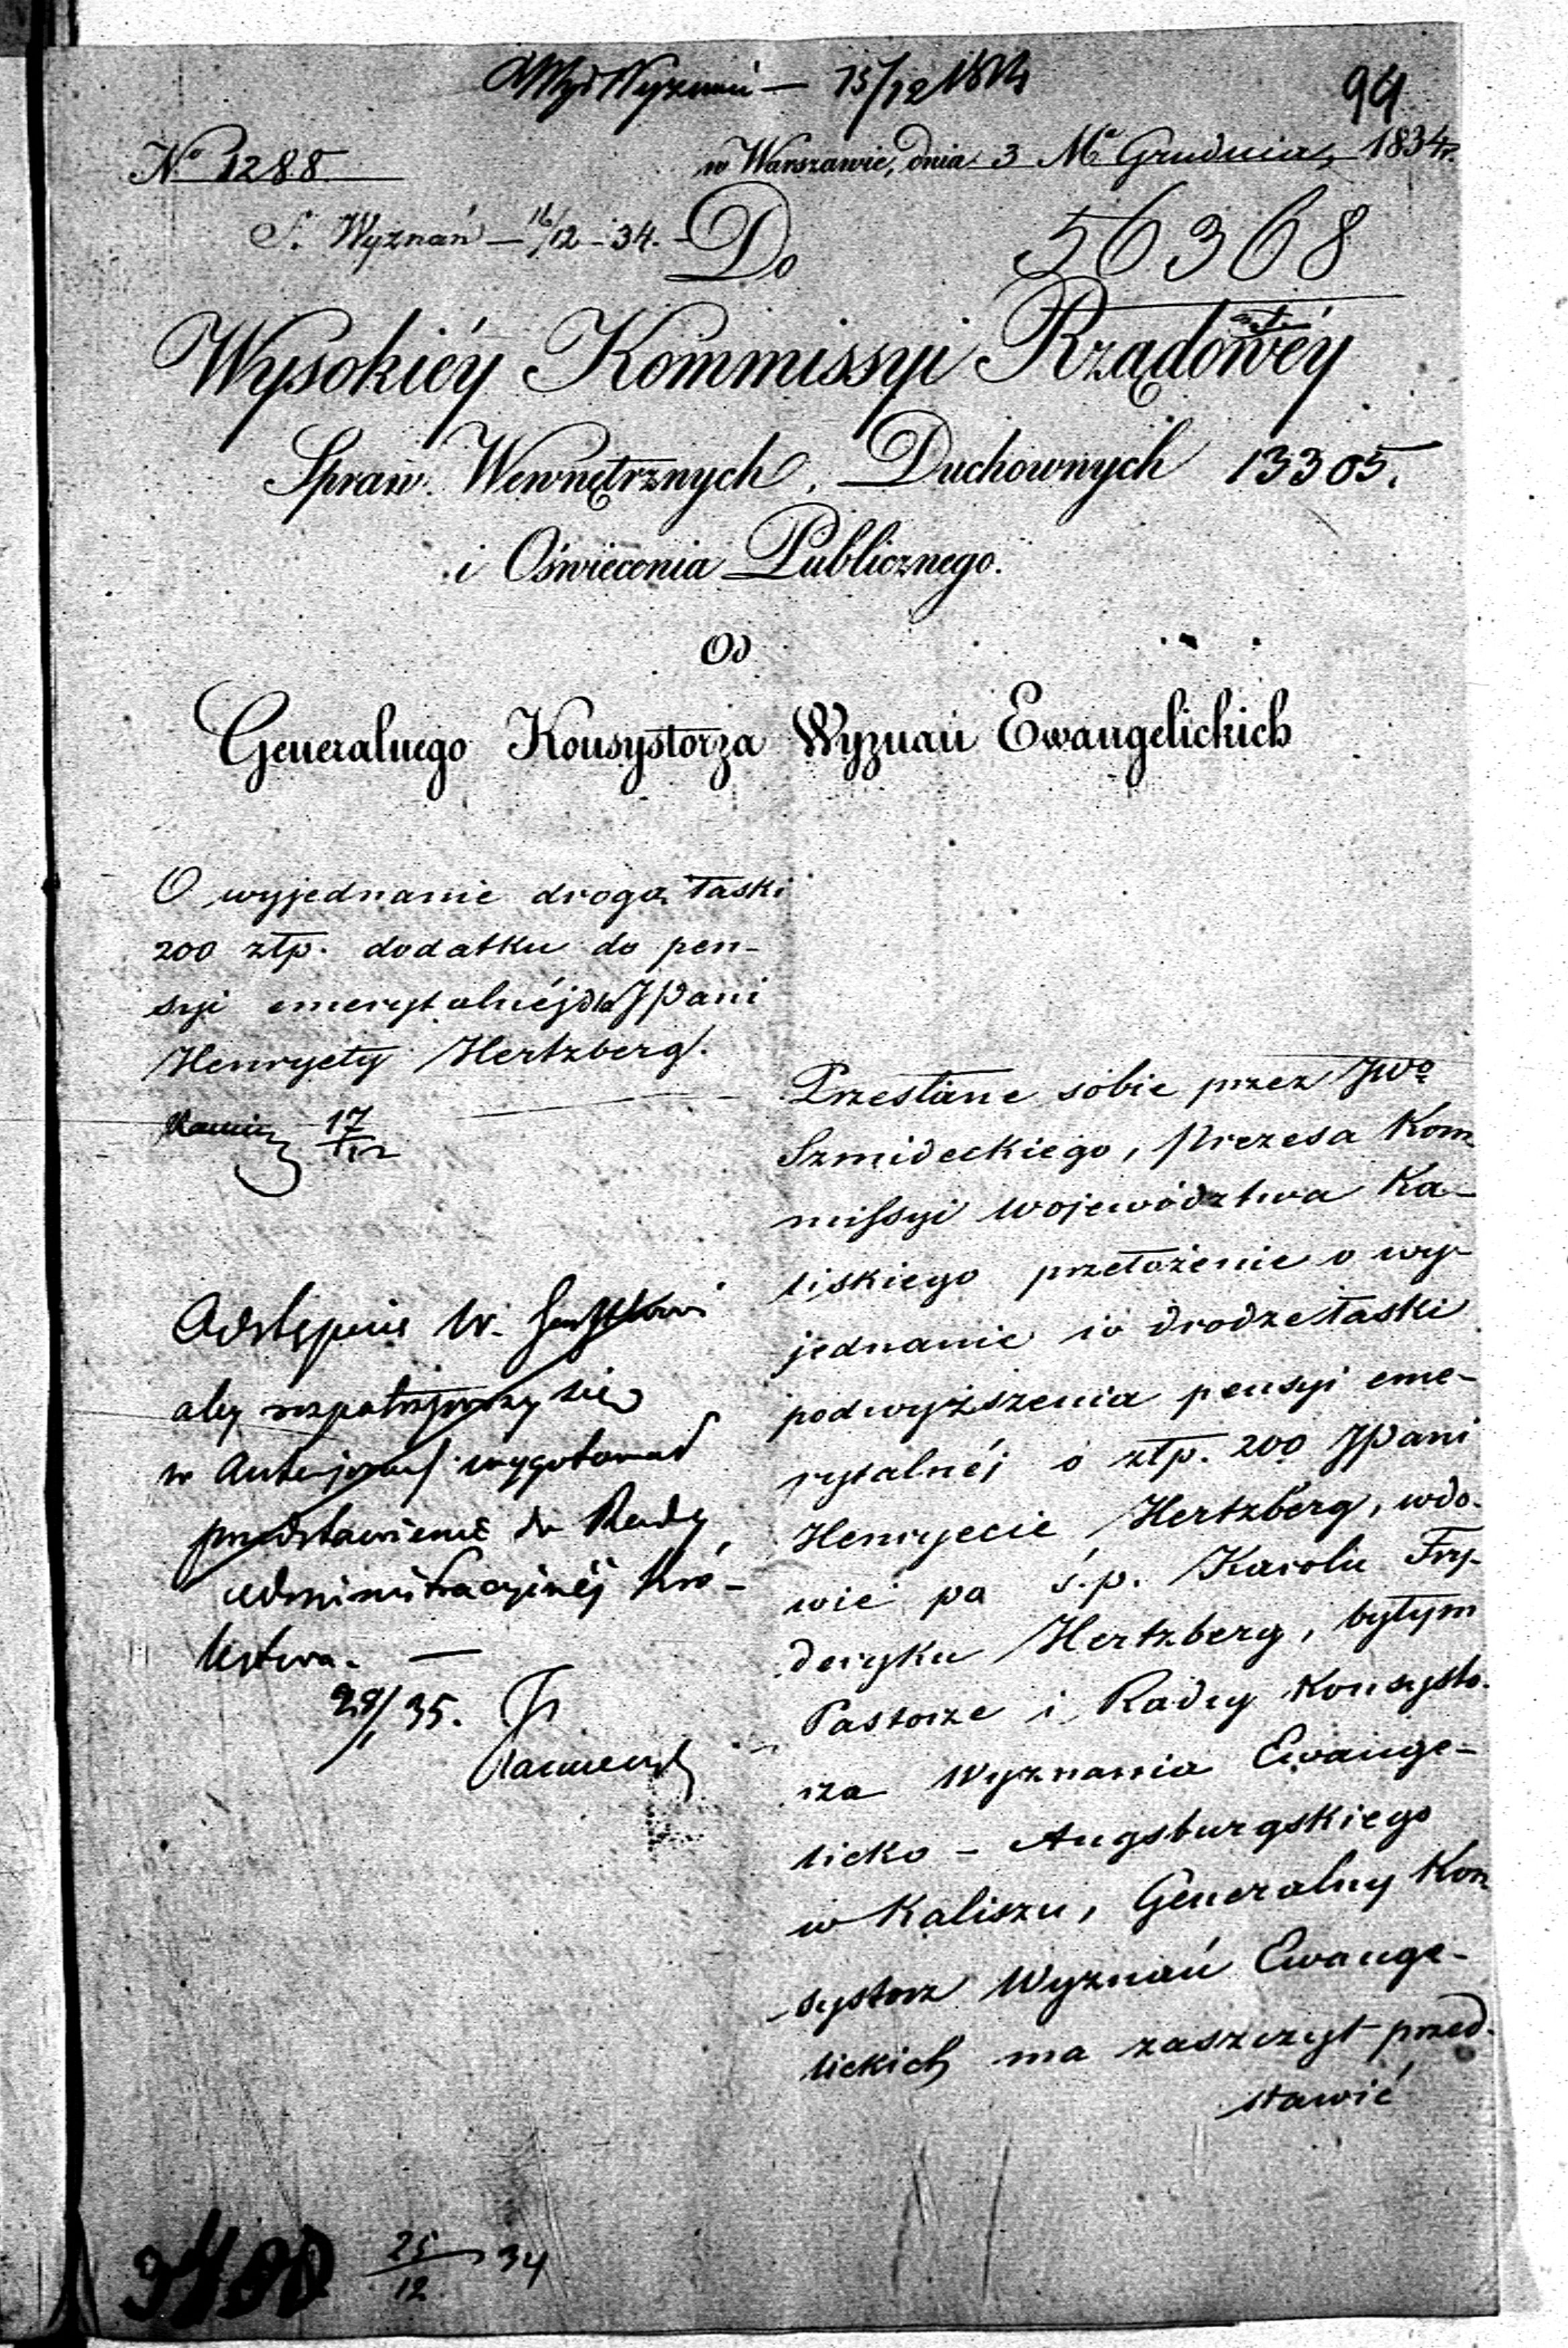 Wyznań — 15/12 1834
94
No 1288
w Warszawie, dnia 3 Mca Grudnia 1834 r.
S. Wyznań — 16/12 - 34.
Do
56368
Wysokiéy Kommissyi Rządowéy
Spraw Wewnętrznych, Duchownych
13305.
i Oświecenia Publicznego.
Od
Generalnego Konsystorza Wyznań Ewangelickich
O wyjednanie drogą łaski
200 złp. dodatku do pen-
syi emerytalnéj dla JPani
Henryety Hertzberg.
17/12
Odstępuie W.
aby rozpatrzywszy się
w wygotował
przedstawienie do Rady
administracyinéj Kró-
lestwa. —
29/1 35.
Przesłane sobie przez JWo
Szmideckiego, Prezesa Kom
missyi Województwa Ka-
liskiego przełożenie o wy-
jednanie w drodze łaski
podwyższenia pensyi eme-
rytalnéj o złp. 200 JPani
Henryecie Hertzberg, wdo-
wie po ś.p. Karolu Fry-
deryku Hertzberg, byłym
Pastorze i Radcy Konsysto-
rza Wyznania Ewange-
licko - Augsburgskiego
w Kaliszu, Generalny Kon
systorz Wyznań Ewange-
lickich ma zaszczyt przed-
stawić
25/12 34